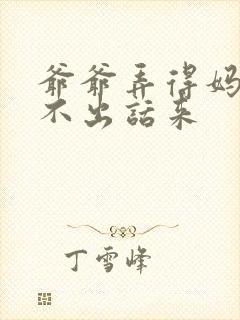 爷爷弄得妈
不出话来
丁雪峰